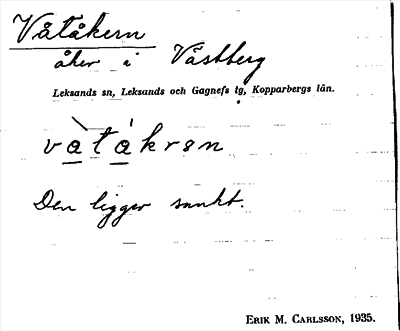 Våtåkern
åker i Västberg
Leksands sn, Leksands och Gagnefs tg, Kopparbergs län.
và̱tá̱krɘn
Den ligger sankt.
ERIK M. CARLSSON, 1935.